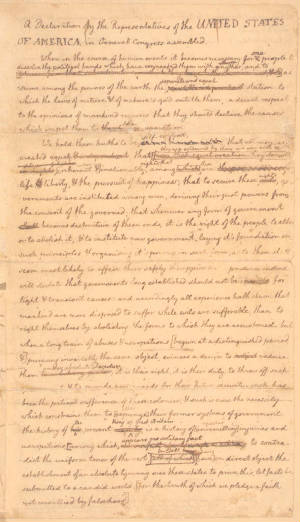 A Declaration by the Representatives of the UNITED STATES
OF AMERICA, in General Congress assembled.
When in the course of human events it becomes necessary for one people to
dissolve the political bands which have connected them with another, and to
assume among the powers of the earth the separate and equal station to
which the laws of nature & of nature's god entitle them, a decent respect
to the opinions of mankind requires that they should declare the causes
which impel them to the separation.
We hold these truths to be self-evident; that all men are
created equal
life & liberty, & the pursuit of happiness; that to secure these rights, go
vernments are instituted among men, deriving their just powers from
the consent of the governed; that whenever any form of government
becomes destructive of these ends, it is the right of the people to alter
or to abolish it, & to institute new government, laying it's foundation on
such principles & organising it's powers in such form, as to them shall
seem most likely to effect their safety & happiness. prudence indeed
will dictate that governments long established should not be changed for
light & transient causes: and accordingly all experience hath shewn that
mankind are more disposed to suffer while evils are sufferable, than to
right themselves by abolishing the forms to which they are accustomed. but
when a long train of abuses & usurpations [begun at a distinguished period
& pursuing invariably the same object, evinces a design to reduce
them it is their right, it is their duty, to throw off such
& to provide new guards for their future security. such has
been the patient sufferance of these colonies; & such is now the necessity
which constrains them to expunge their former systems of government.
the history of the present King of Great Britain is a history of injuries and
usurpations, among which to contra-
dict the uniform tenor of the rest all of which have in direct object the
establishment of an absolute tyranny over these states. to prove this, let facts be
submitted to a candid world [for the truth of which we pledge a faith
yet unsullied by falsehood]